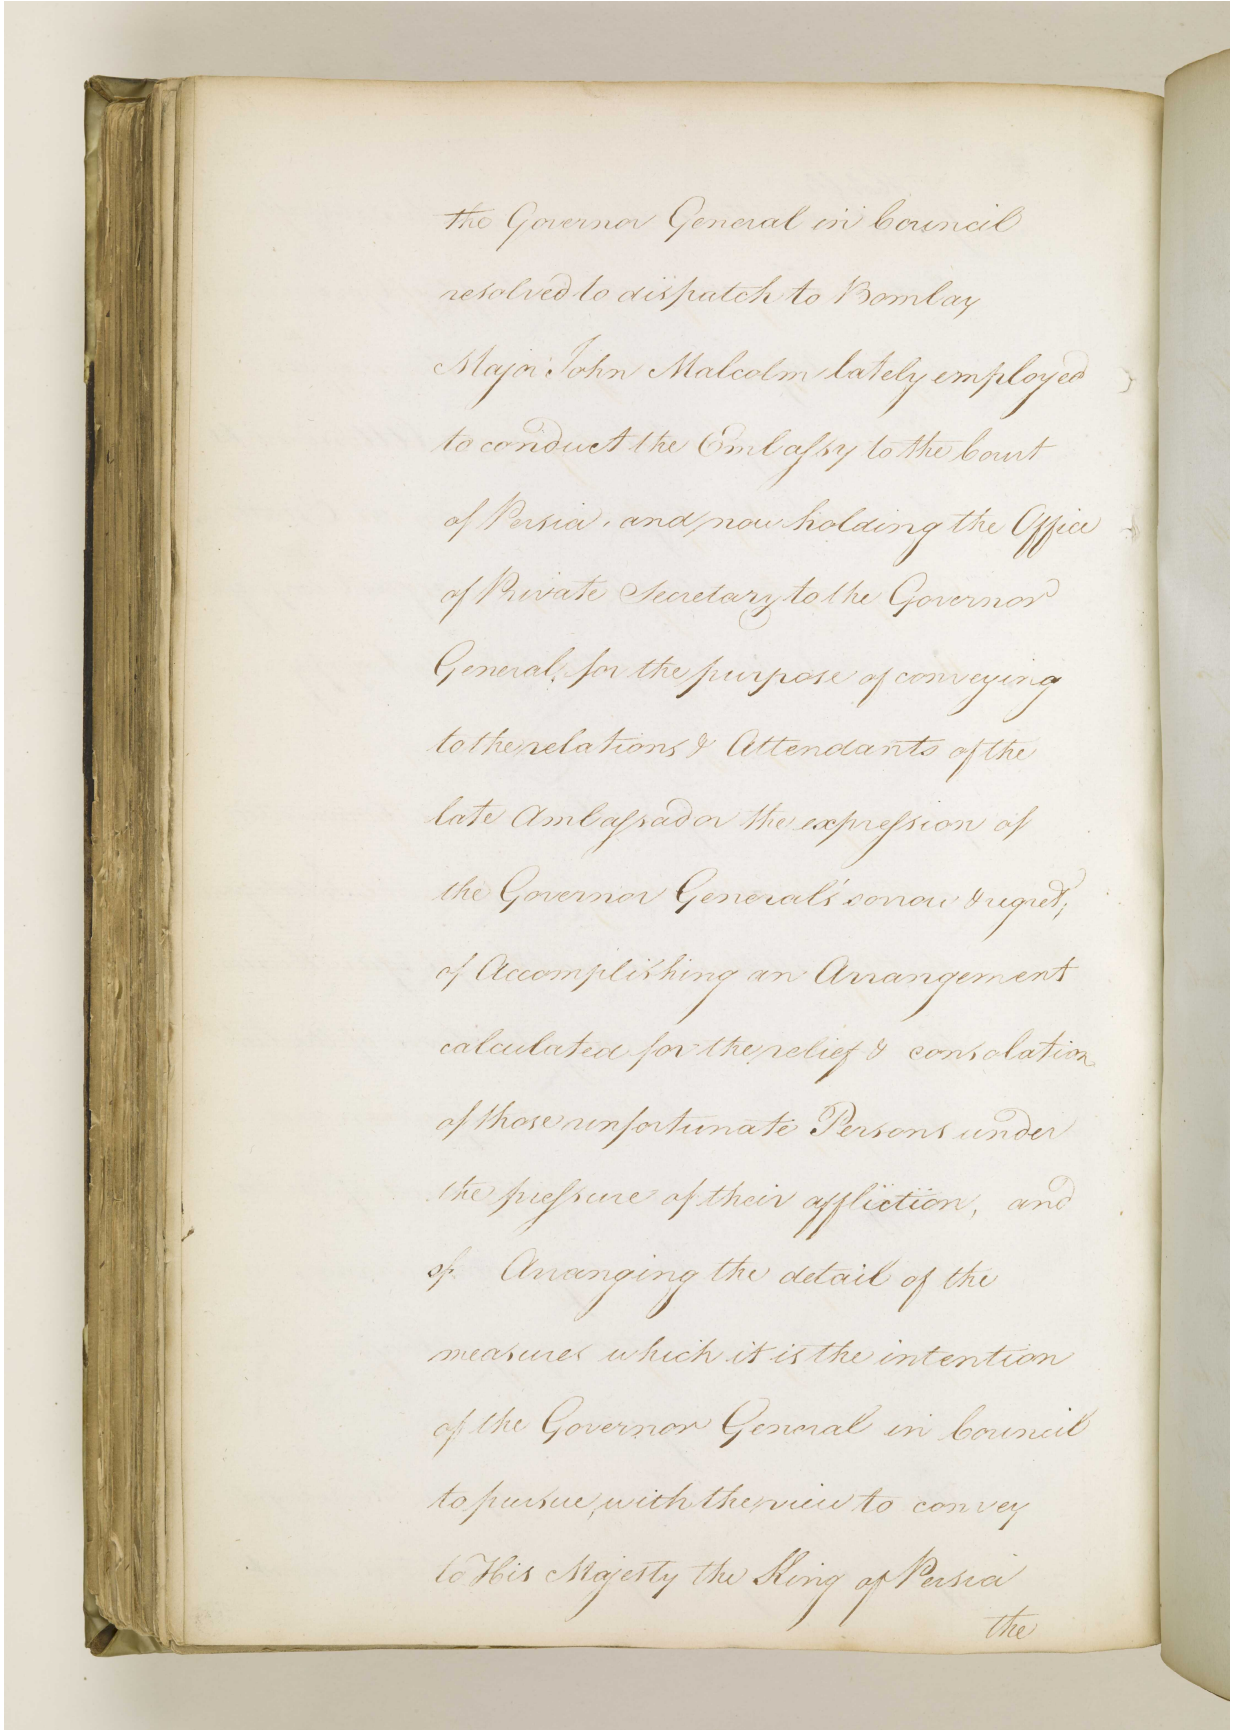 the Governor General in Council
resolved to dispatch to Bombay
Major John Malcolm lately employed
to conduct the Embassy to the Court
of Persia, and now holding the Office
of Private Secretary to the Governor
General, for the purpose of conveying
to the relations & Attendants of the
late Ambassador the expression of
the Governor General's sorrow & regret,
of Accomplishing an Arrangement
calculated for the relief & consolation
of those unfortunate Persons under
the pressure of their affliction, and
of Arranging the detail of the
measures which it is the intention
of the Governor General in Council
to pursue, with the view to convey
to His Majesty the King of Persia
the